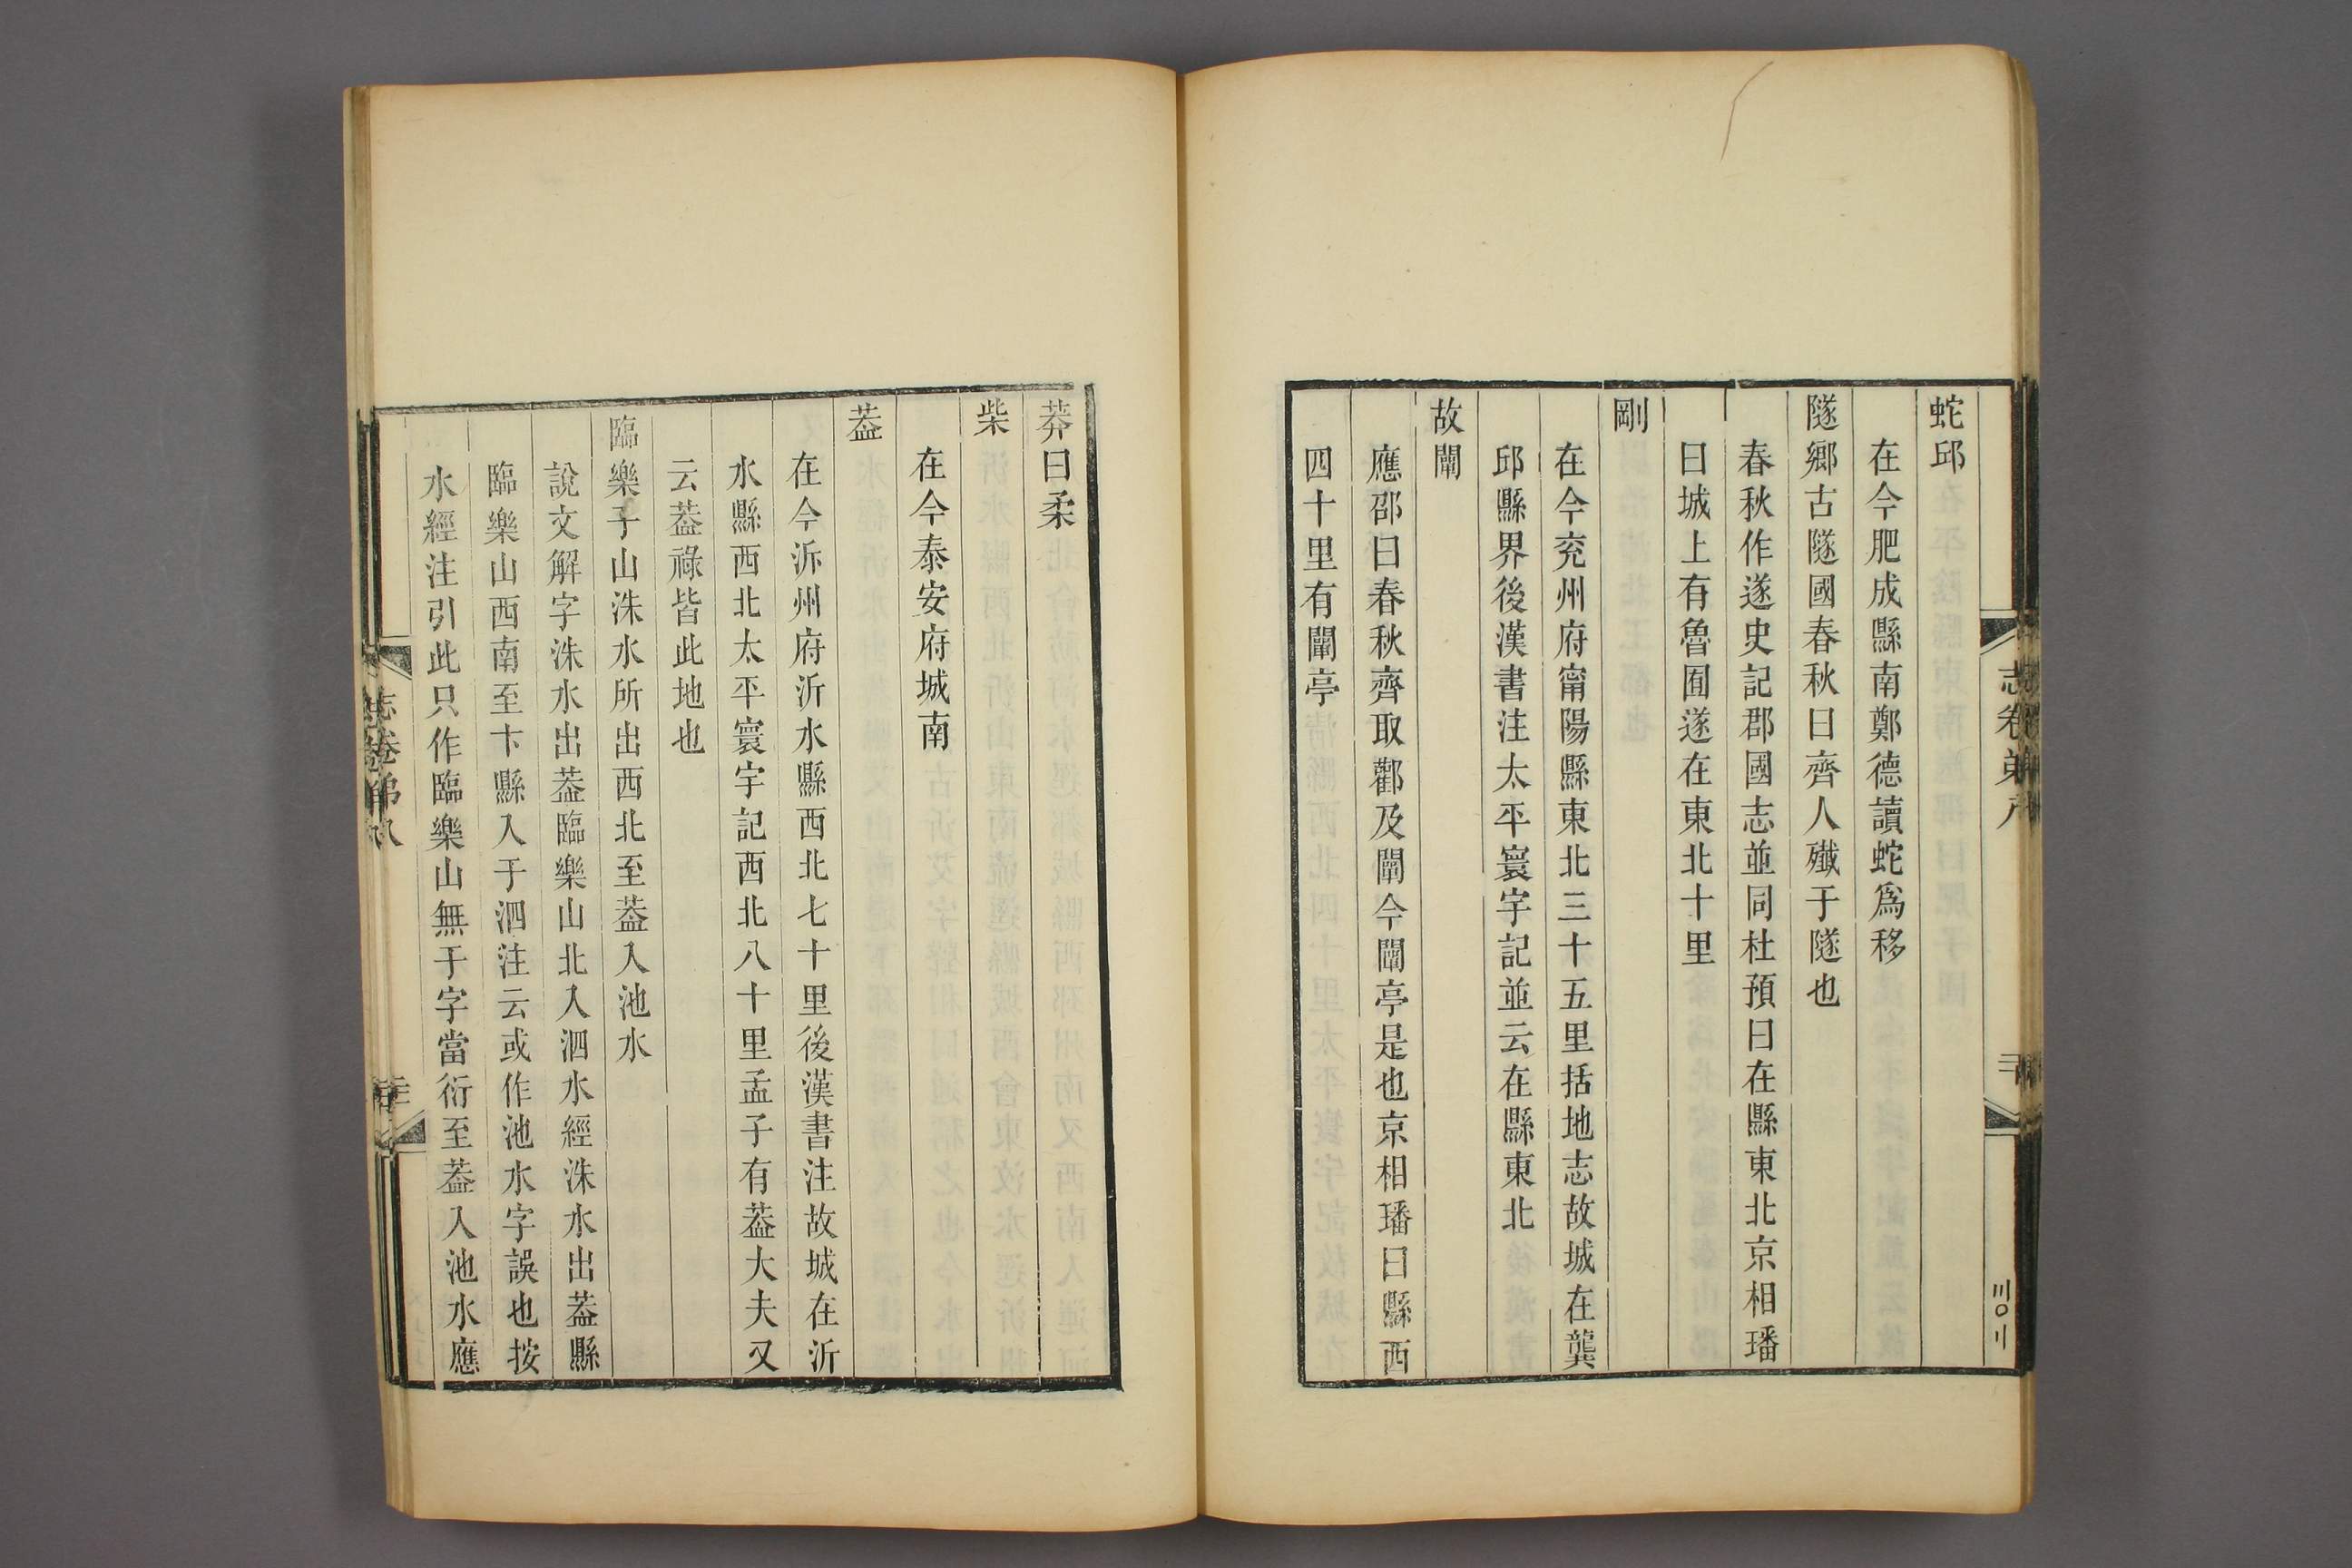 蛇邱
在今肥成縣南鄭德讀蛇爲移
隧鄉古隧國春秋曰齊人殲于隧也
春秋作遂史記郡國志並同杜預曰在縣東北京相璠
曰城上有魯囿遂在東北十里
剛
在今兖州府甯陽縣東北三十五里括地志故城在龔
邱縣界後漢書注太平寰宇記並云在縣東北
故闡
應邵曰春秋齊取酄及闡今闡亭是也京相璠曰縣西
四十里有闡亭
莽曰柔
柴
在今泰安府城南
葢
在今沂州府沂水縣西北七十里後漢書注故城在沂
水縣西北太平寰宇記西北八十里孟子有葢大夫又
云葢祿皆此地也
臨樂子山洙水所出西北至葢入池水
說文解字洙水出葢臨樂山北入泗水經洙水出葢縣
臨樂山西南至卞縣入于泗注云或作池水字誤也按
水經注引此只作臨樂山無于字當衍至葢入池水應
志卷弟八